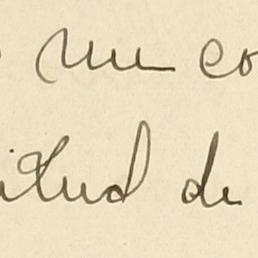 un co
itud de